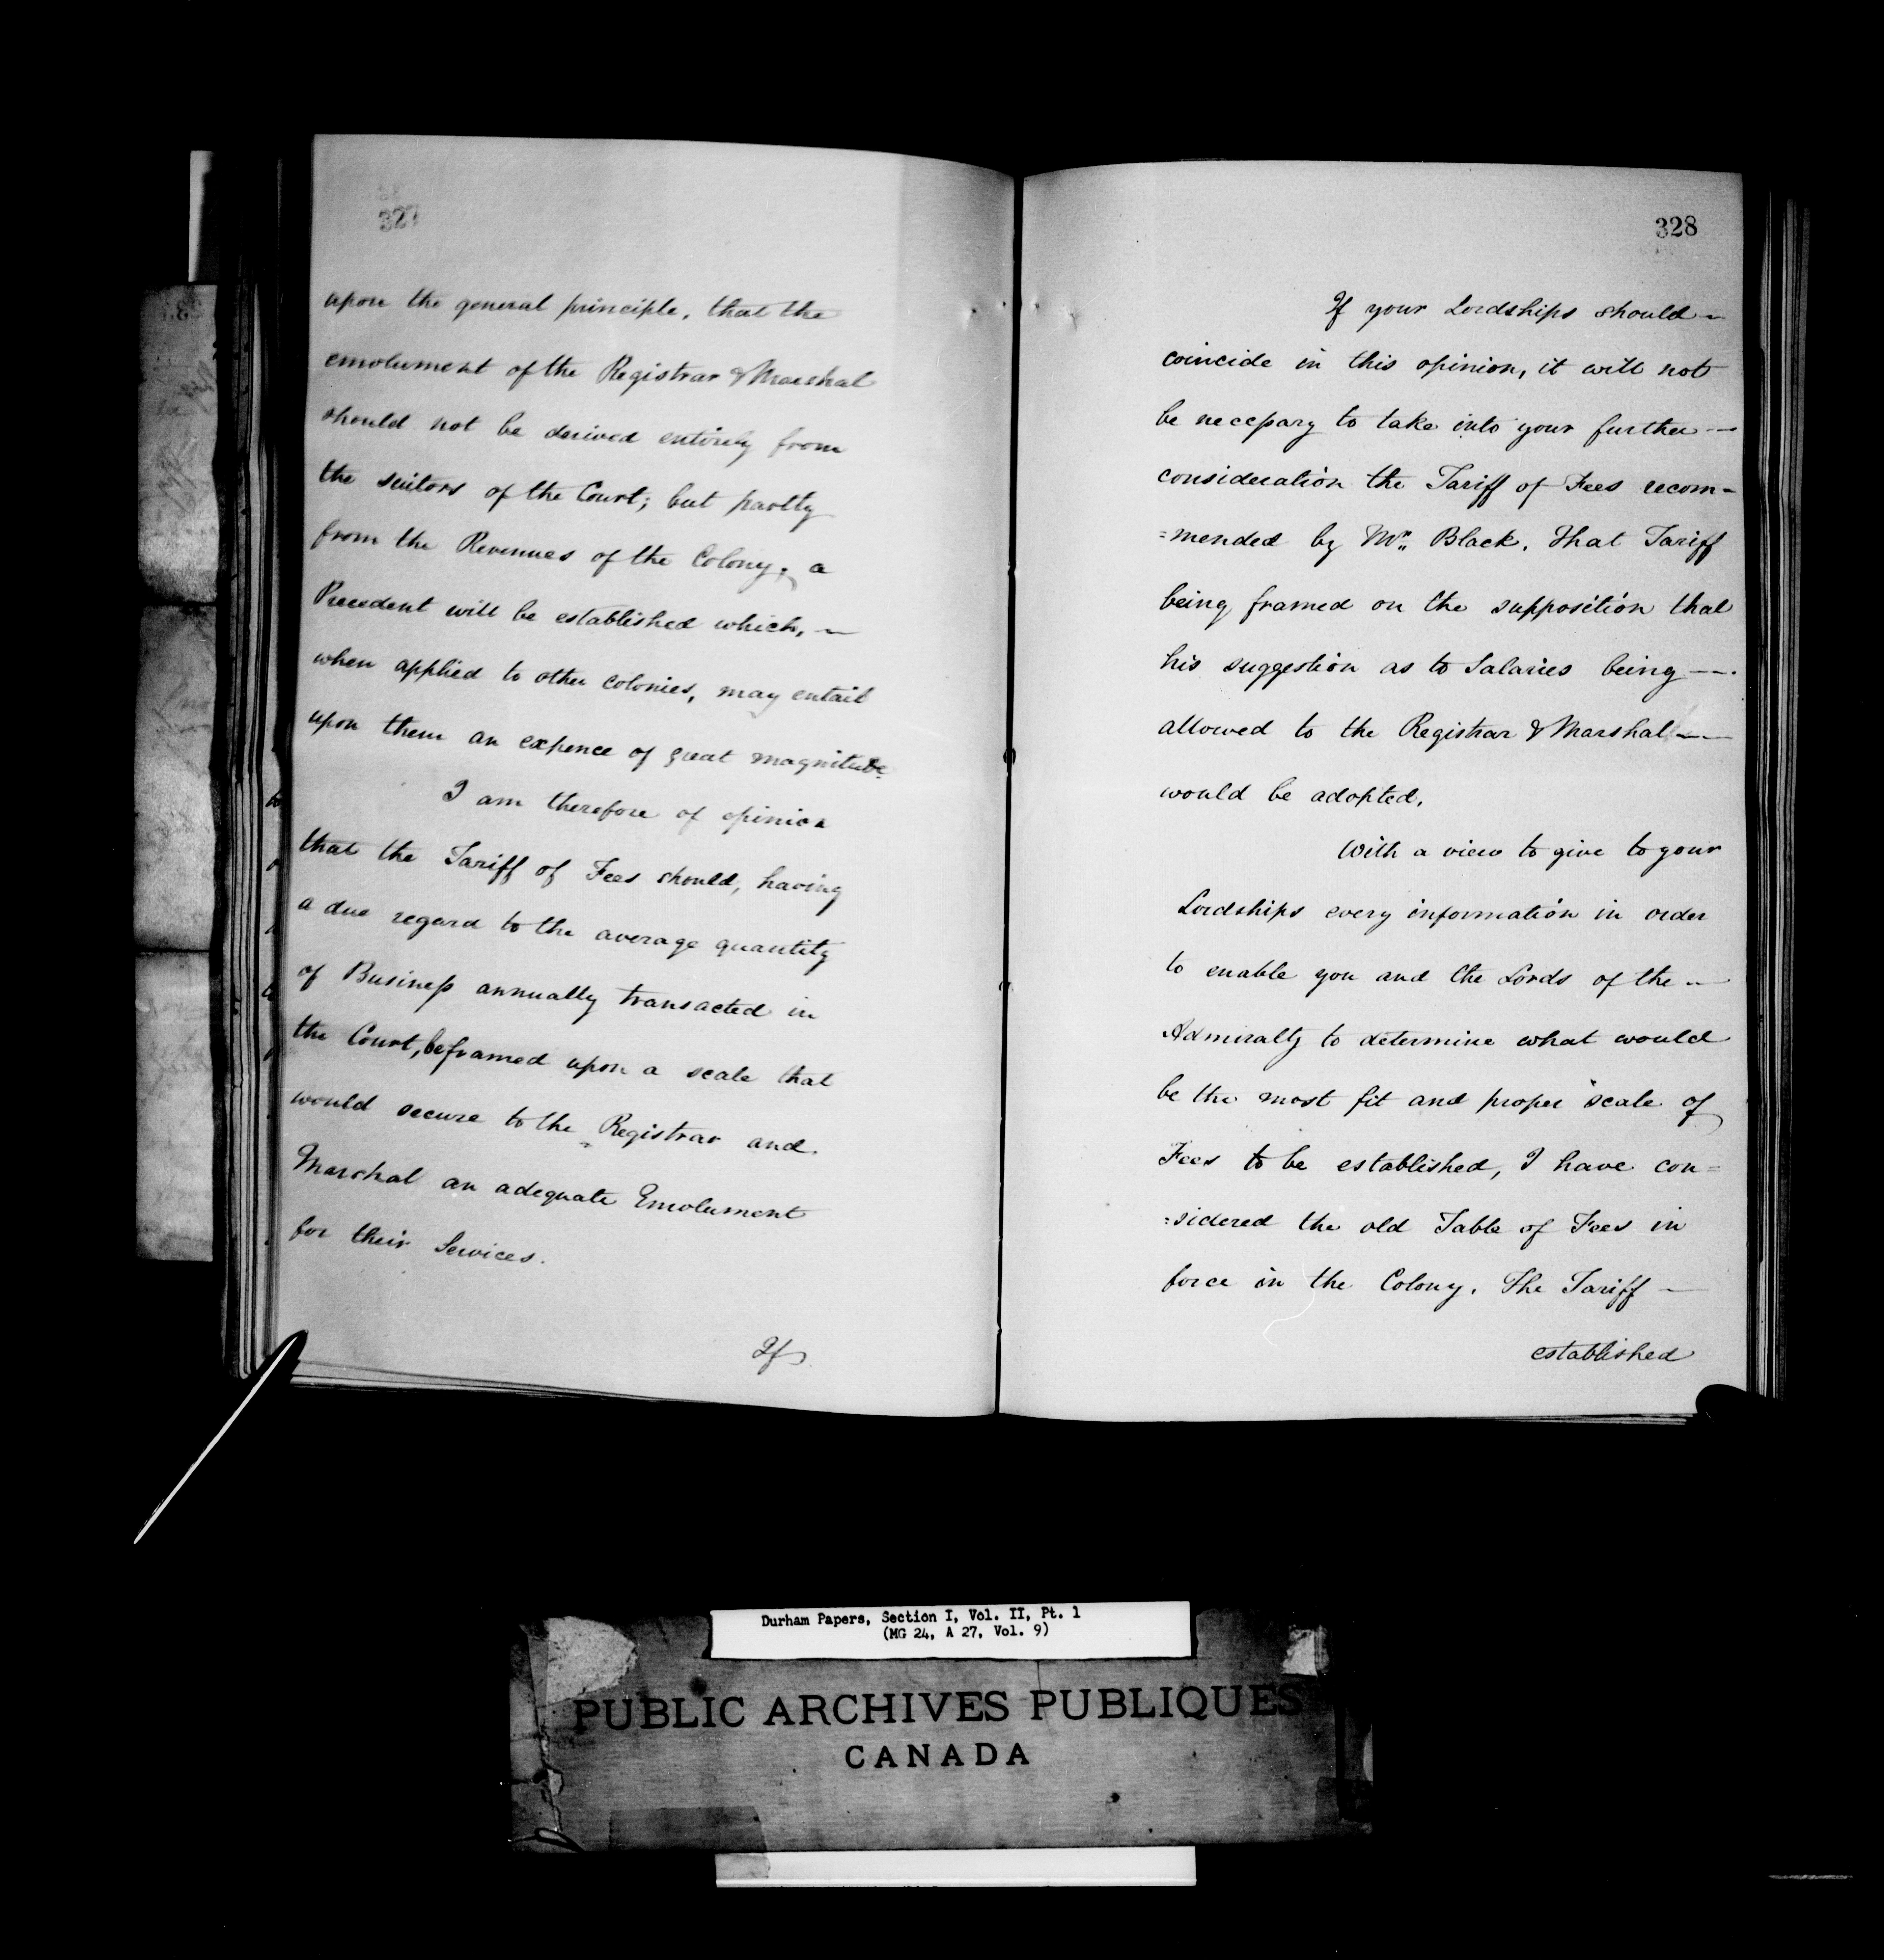 327
upon the general principle, that the
emolument of the Registrar & Marshal
should not be derived entirely from
the suitors of the Court; but partly
from the Revenues of the Colony; a
Precedent will be established which, —
when applied to other colonies, may entail
upon them an expence of great magnitude
I am therefore of opinion
that the Tariff of Fees should, having
a due regard to the average quantity
of Business annually transacted in
the Court, be framed upon a scale that
would secure to the Registrar and
Marshal an adequate Emolument
for their Services.
If
328
If your Lordships should —
coincide in this opinion, it will not
be necessary to take into your further —
consideration the Tariff of Fees recom-
=mended by Mr. Black. That Tariff
being framed on the supposition that
his suggestion as to Salaries being —
allowed to the Registrar & Marshal —
would be adopted.
With a view to give to your
Lordships every information in order
to enable you and the Lords of the —
Admiralty to determine what would
be the most fit and proper scale of
Fees to be established, I have con=
=sidered the old Table of Fees in
force in the Colony. The Tariff —
established
Durham Papers, Section I, Vol. II, Pt. 1
(MG 24, A 27, Vol. 9)
PUBLIC ARCHIVES PUBLIQUES
CANADA